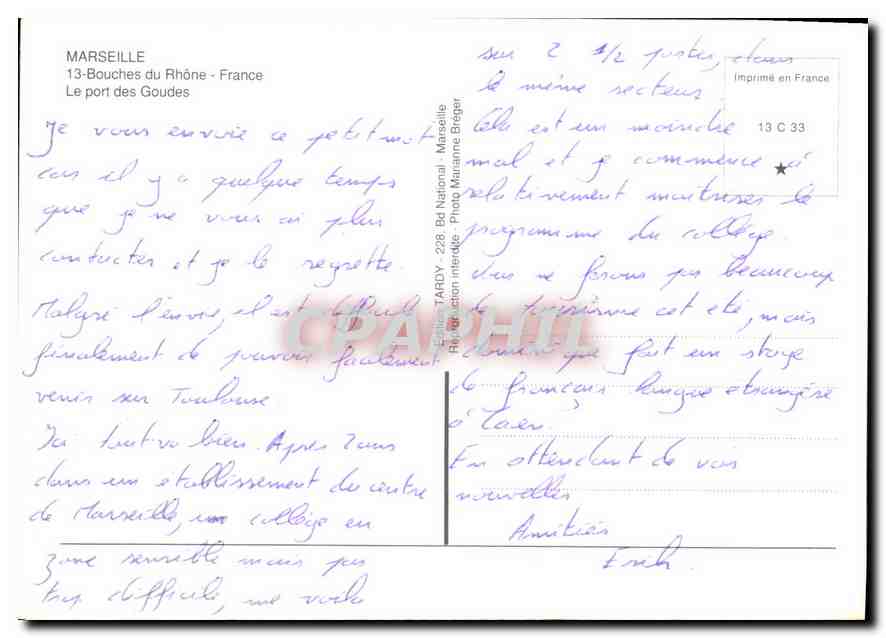 MARSEILLE
13-Bouches du Rhône - France
Le port des Goudes
Je vous envoie ce petit mot
car il y a quelque temps
que je ne vous ai plus
contacter et je le regrette.
Malgré l'envie, il est difficile
finalement de pouvoir facilement
venir sur Toulouse
Ici tout va bien. Après 2 ans
dans un etablissement du centre
de Marseille, un collège en
zone sensible mais pas
trop difficile, me voila
Edition TARDY - 228, Bd National - Marseille
Reproduction interdite - Photo Marianne Bréger
sur 2 1/2 postes, dans
le même secteur.
Cela est un moindre
mal et je commence à
relativement maitriser le
programme du collège.
Nous ne ferons pas beaucoup
de tourisme cet eté, mais
Dominique fait un stage
de français langue etrangère
à Caen.
En attendant de vos
nouvelles
Amitiés
Imprimé en France
13 C 33
CPAPHIL